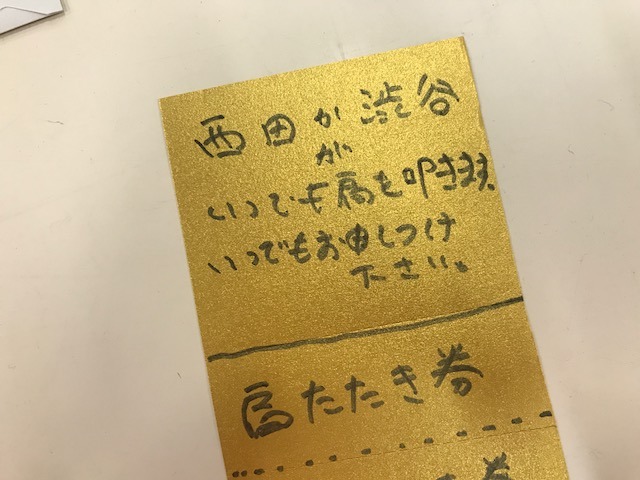 西田か渋谷
が
いつでも肩を叩きます。
いつでもお申しつけ
下さい。
肩たたき券
券